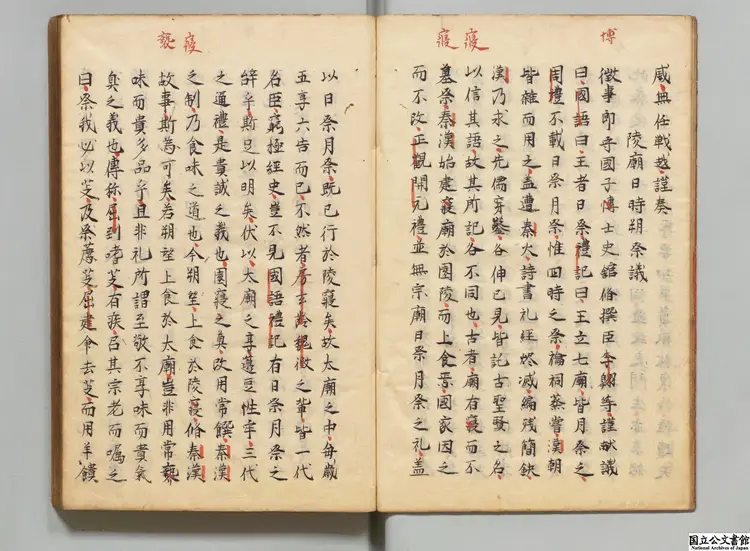 博
寢寢
感無任戦越謹奏
陵廟日時朔祭議
徴事郎守國子博士史舘修撰臣李翺等謹献議
曰國語曰王者日祭禮記曰王立七廟皆月祭之
周禮不載日祭月祭惟四時之祭禴祠蒸嘗漢朝
皆雜而用之盖遭秦火詩書礼經燼滅編残簡缺
漢乃求之先儒穿鑿各伸己見皆託古聖賢之名
以信其語故其所記各不同也古者廟有寢而不
墓祭秦漢始建寢廟於園陵而上食焉國家因之
而不改正觀開元禮並無宗廟日祭月祭之礼盖
寢
褻
以日祭月祭既已行於陵寢矣故太廟之中毎歳
五享六告而已不然者房玄齡魏徴之輩皆一代
名臣窮極經史豈不見國語禮記有日祭月祭之
辞乎斯足以明矣伏以太廟之享籩豆性牢三代
之通禮是貴誠之義也園寢之奠改用常饌秦漢
之制乃食味之道也今朔望上食於陵寢修秦漢
故事斯為可矣若朔望上食於太廟豈非用常褻
味而貴多品乎且非礼所謂至敬不享味而貴氣
臭之義也傳称屈到嗜芰有疾召其宗老而嘱之
曰祭我必以芰及祭薦芰屈建命去芰而用羊饋
国立公文書館
National Archives of Japan